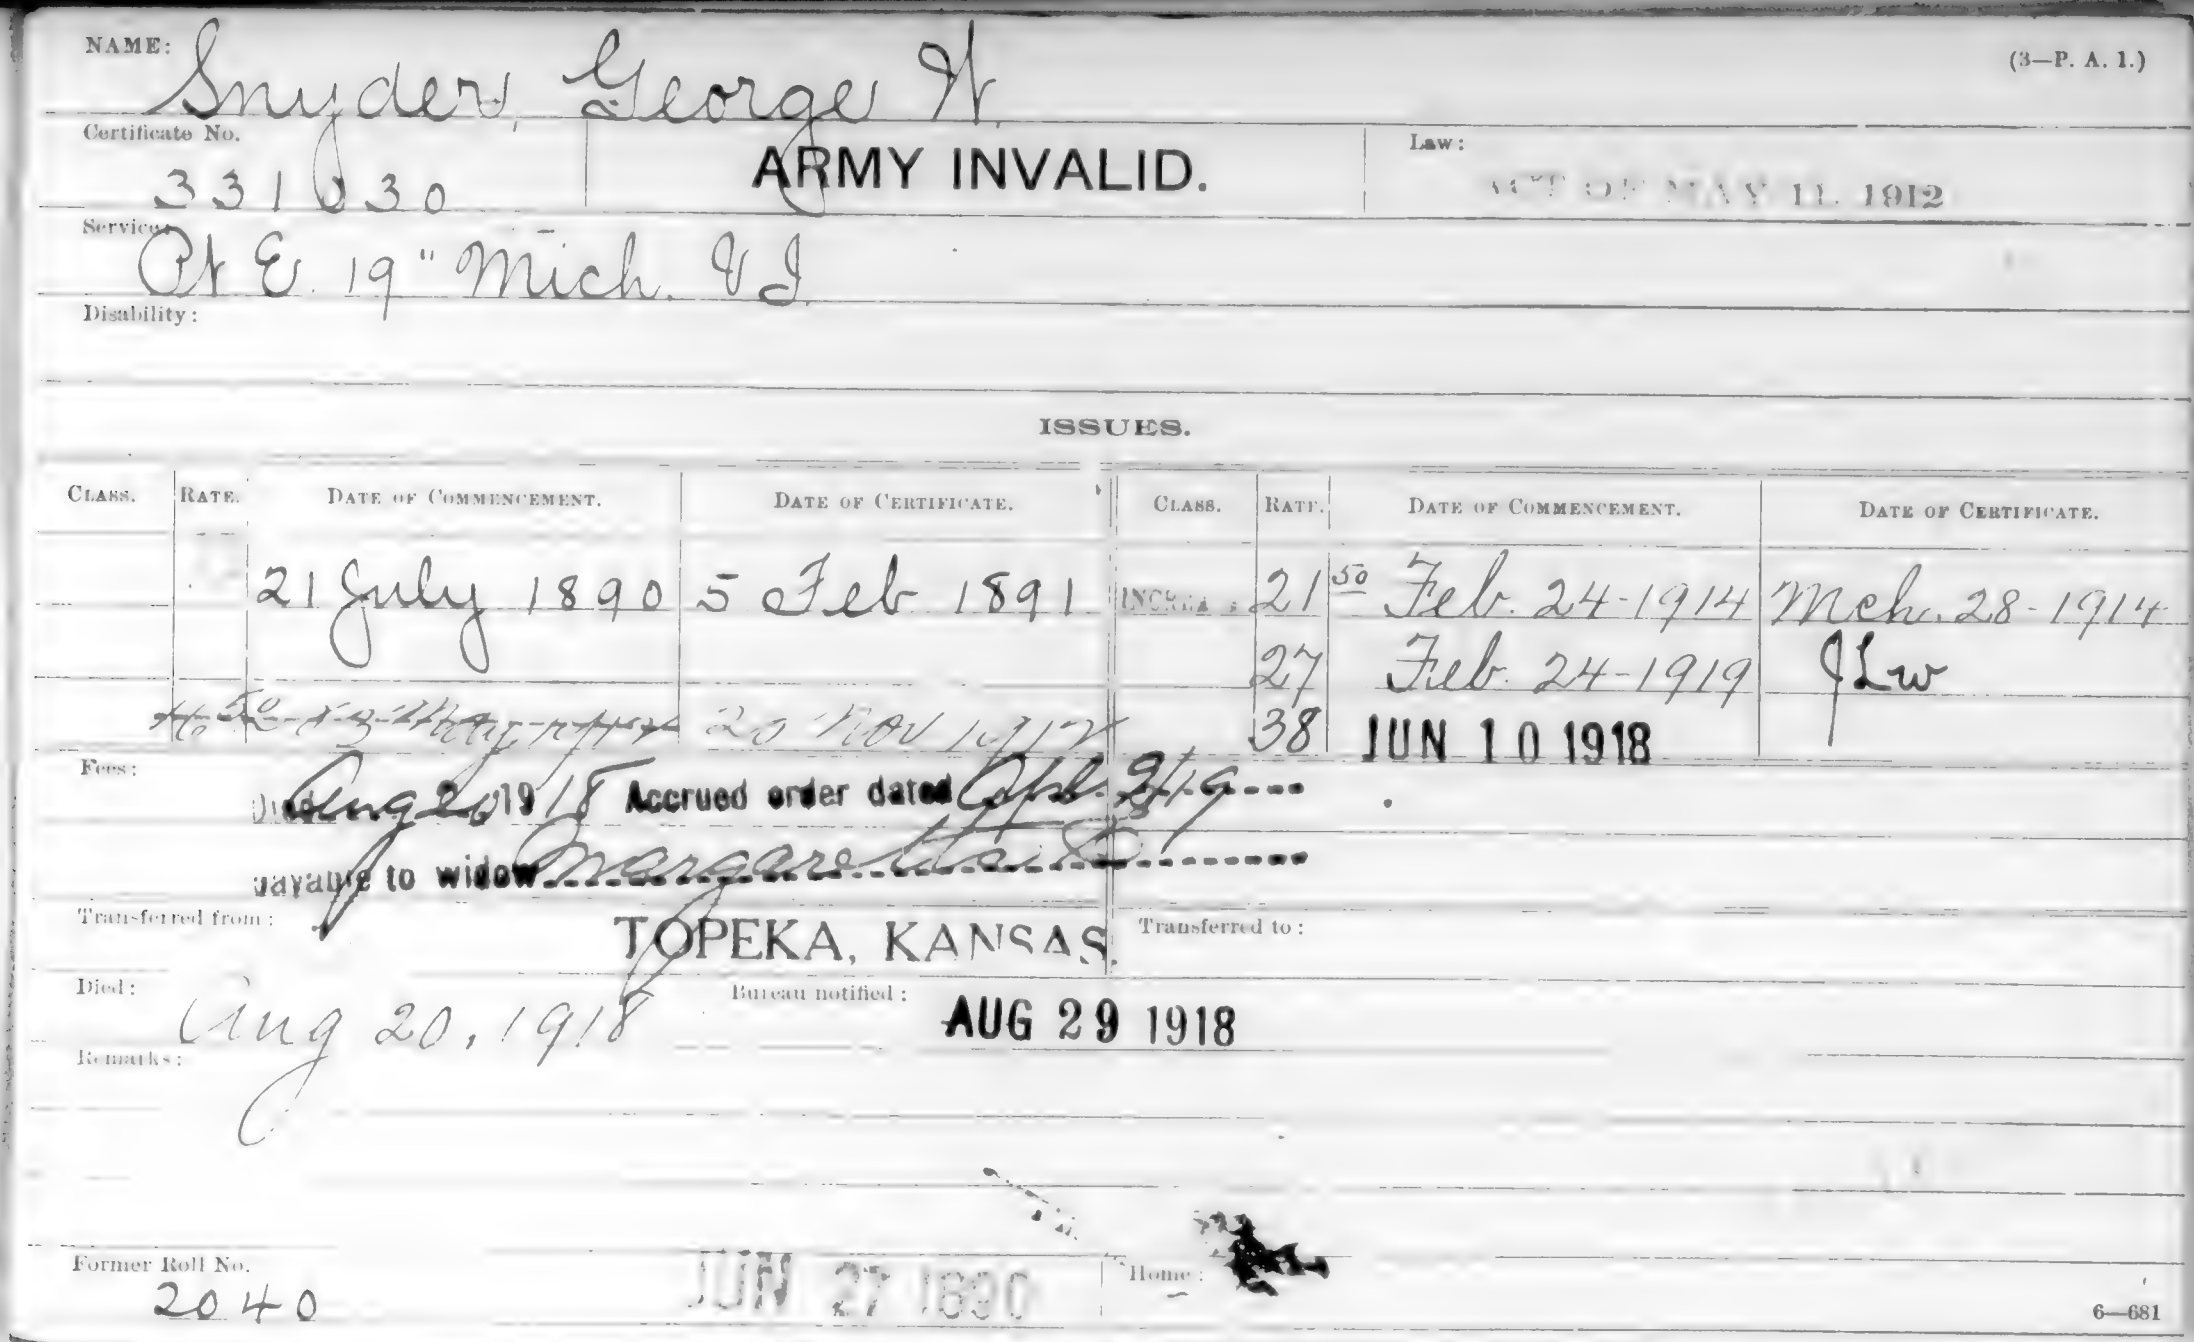 NAME: Snyder, George W. (3—P. A. 1.)
Certificate No. 331030 ARMY INVALID. Law: ACT OF MAY 11, 1912
Service: Pt E. 19" Mich. V I.
Disability:
ISSUES.
CLASS. RATE. DATE OF COMMENCEMENT. DATE OF CERTIFICATE. CLASS. RATE. DATE OF COMMENCEMENT. DATE OF CERTIFICATE.
21 July 1890 5 Feb 1891 INCREASE 21 50 Feb. 24-1914 Mch. 28-1914
27 Feb. 24-1919 JLW
50 20 Nov 1912 38 JUN 10 1918
Fees:
Died Aug 20 1918 Accrued order dated Apl.
payable to widow
Transferred from: TOPEKA, KANSAS. Transferred to:
Died: Aug 20, 1918 Bureau notified: AUG 29 1918
Remarks:
Former Roll No. 2040 JUN 27 1890 Home:
6—681